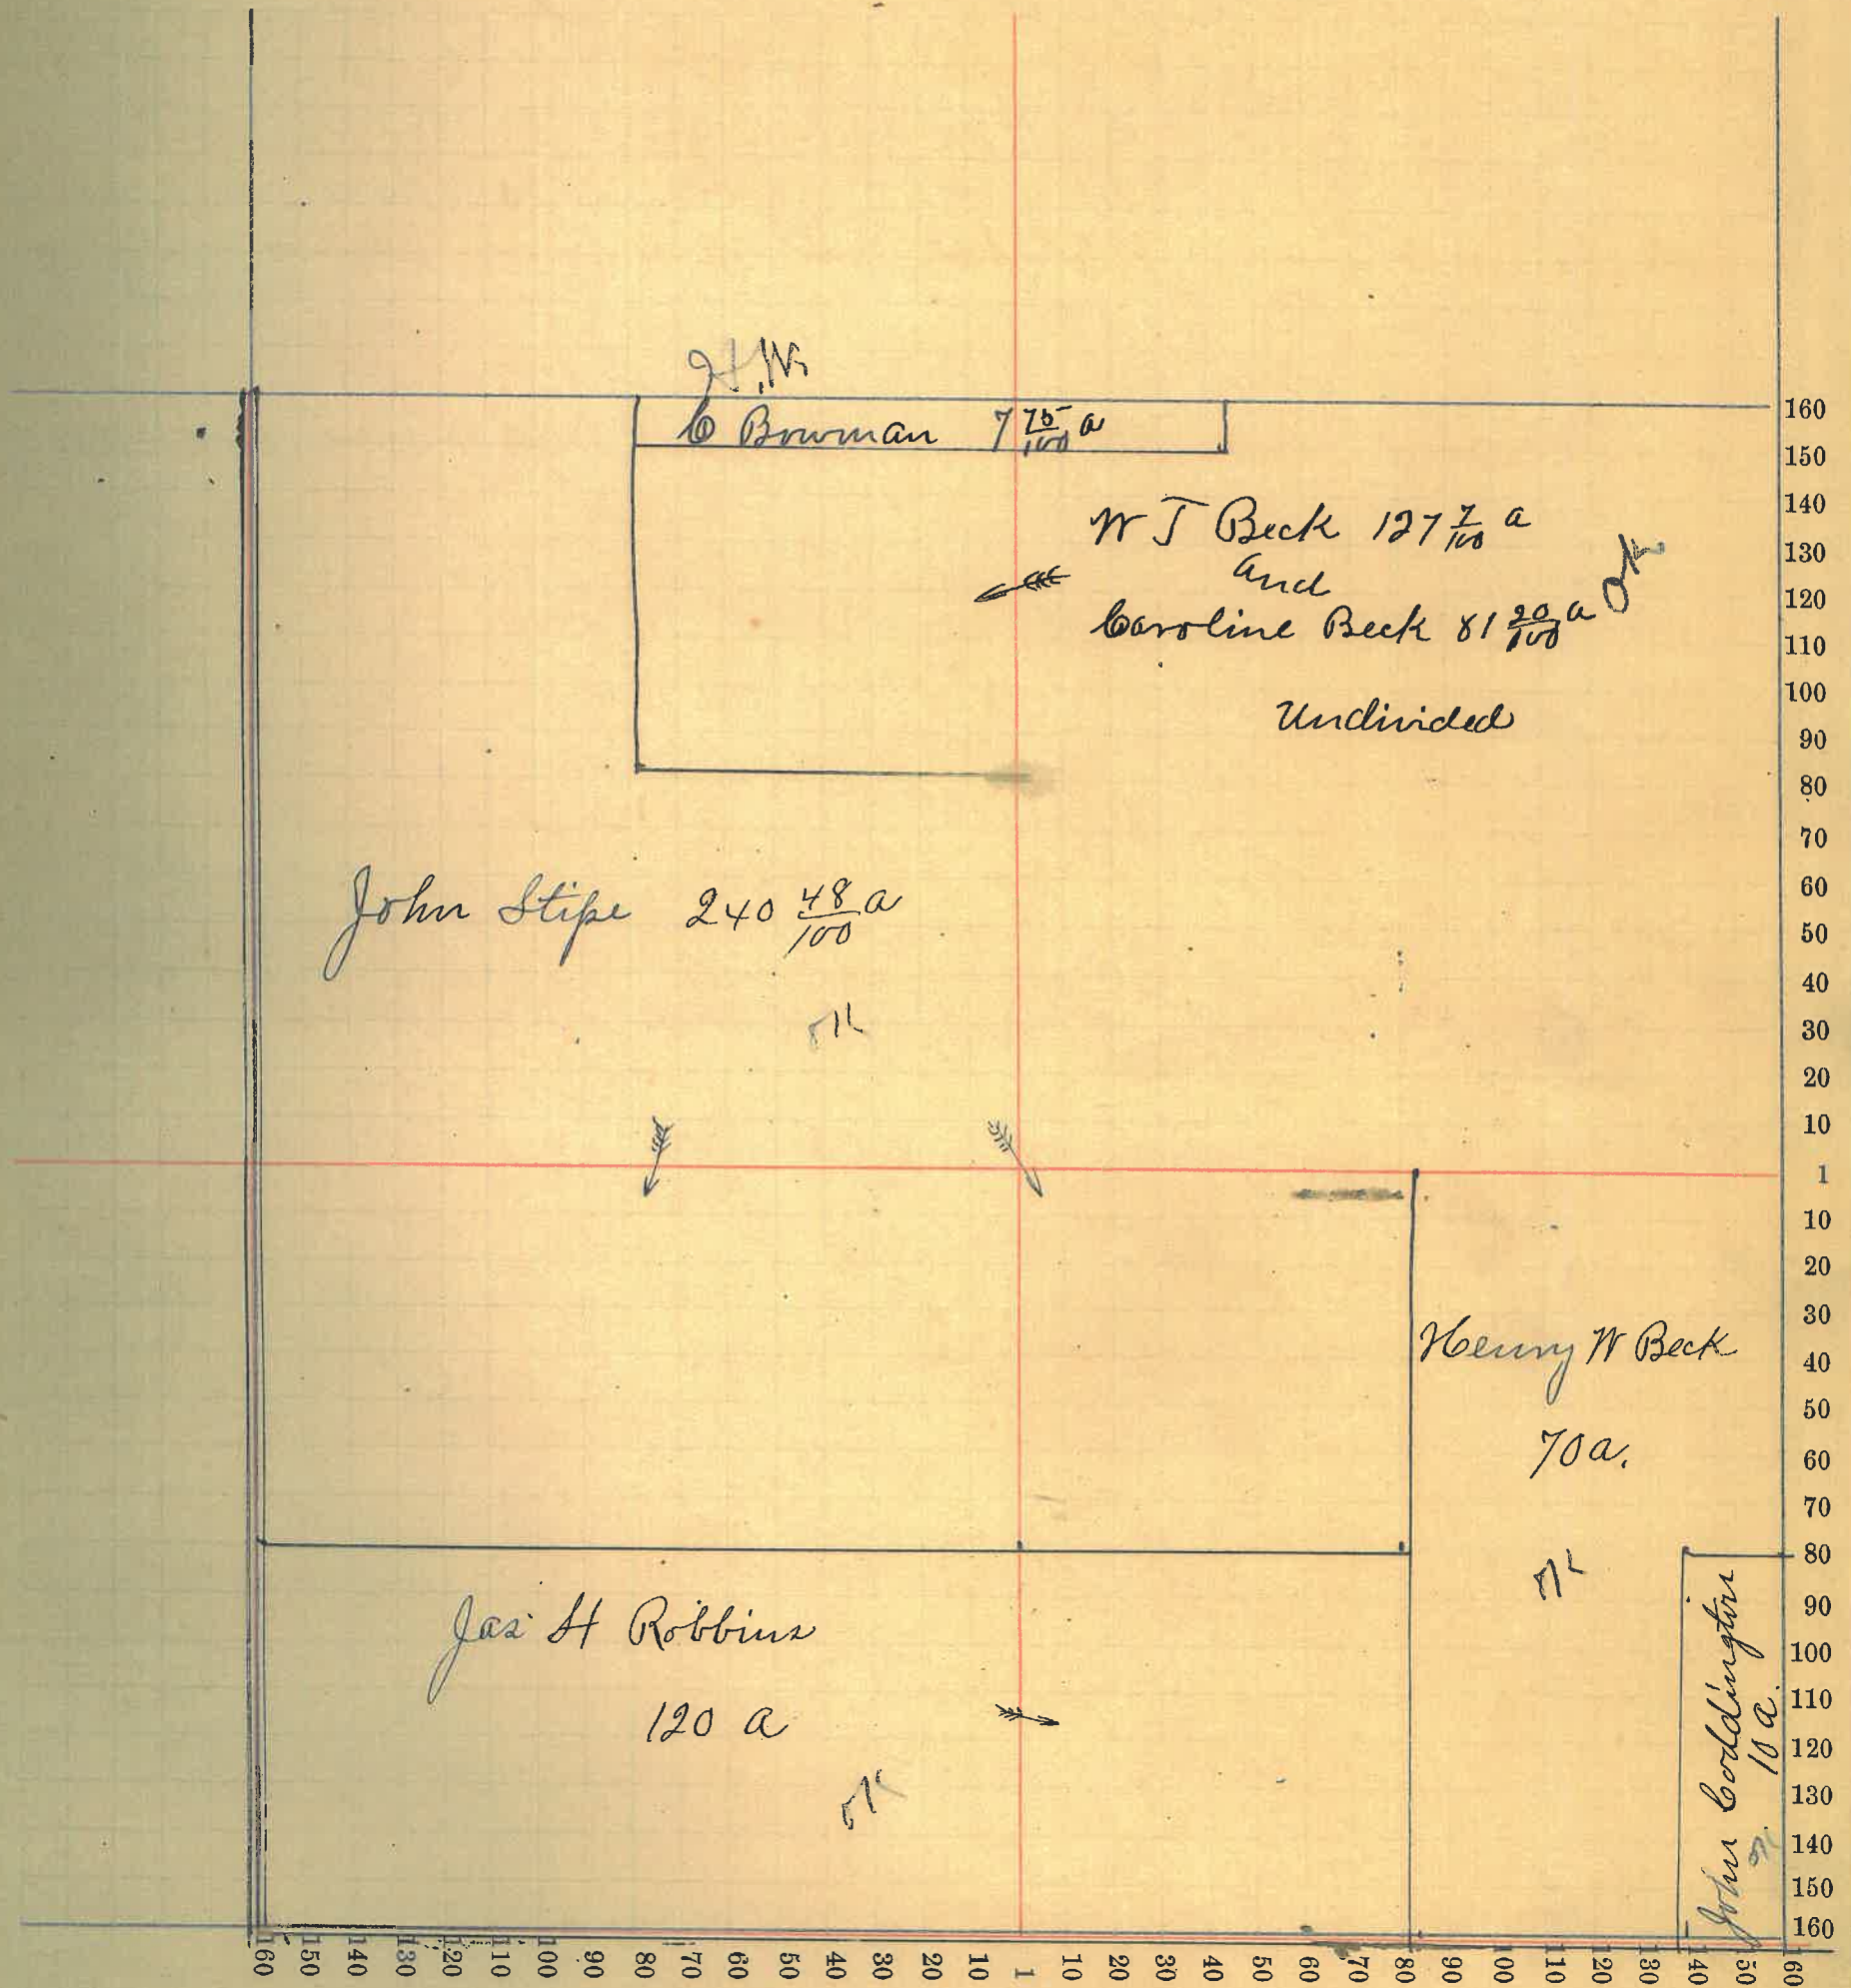 H.W.
C Bowman 7 75/100 a
W T Beck 127 7/100 a
and
Caroline Beck 81 20/100 a
OK
Undivided
John Stipe 240 48/100 a
OK
Henry W Beck
70 a.
OK
Jas H Robbins
120 a
OK
John Coddington
10 a.
OK
160
150
140
130
120
110
100
90
80
70
60
50
40
30
20
10
1
10
20
30
40
50
60
70
80
90
100
110
120
130
140
150
160
160 150 140 130 120 110 100 90 80 70 60 50 40 30 20 10 1 10 20 30 40 50 60 70 80 90 100 110 120 130 140 150 160